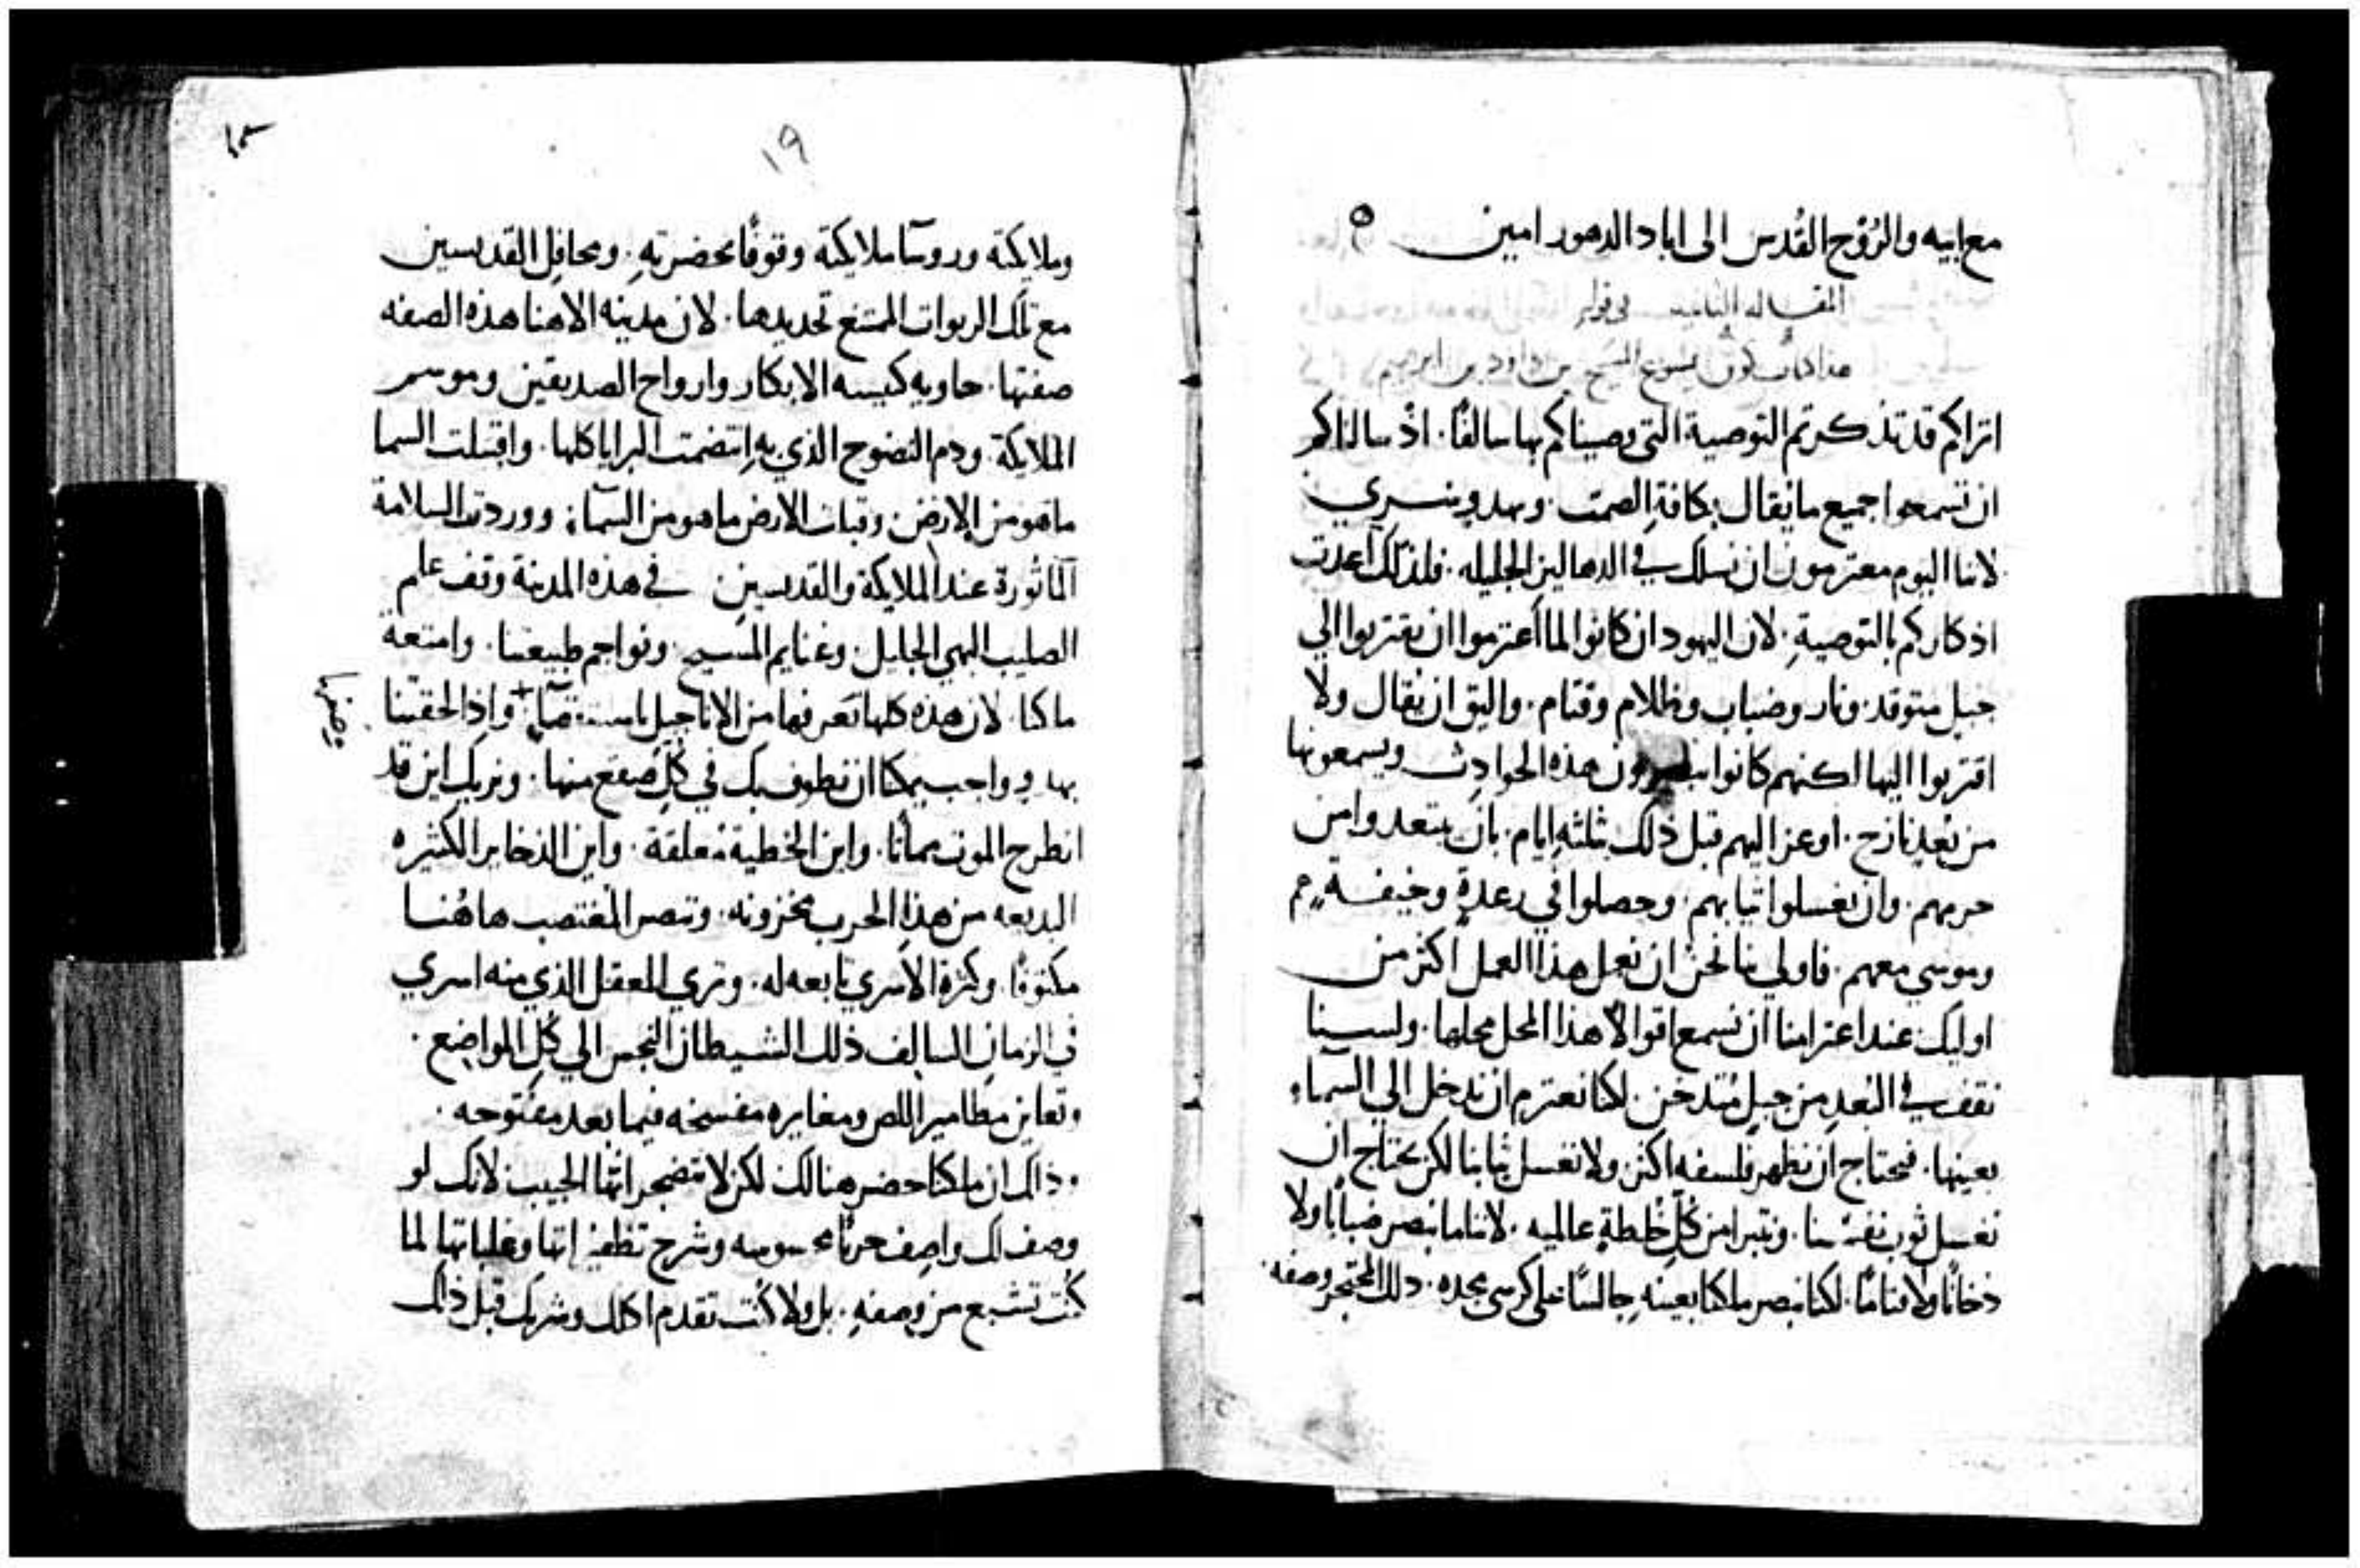 مع ابيه والرُوْح القُدس الى اباد الدهور امين ه
المقاله الثانيه في قوله
هذا كتاب كون يسوع المسيح بن داود بن ابرهيم
اتراكم قد تذكرتم التوصية التى وصيناكم بها سالفًا. اذ سالناكم
ان تسمعوا جميع ما يقال بكافةِ الصمت. وبهدوٍ سري
لاننا اليوم معتزمون ان نسلك في الدهاليز الجليله. فلذلك اعدت
اذكاركم بالتوصيةِ. لان اليهود ان كانوا لما أعتزموا ان يقتربوا الي
جبل متوقد. ونار وضباب وظلام وقتام. واليق ان يقال ولا
اقتربوا اليها لكنهم كانوا يبصرون هذه الحوادِث ويسمعونها
من بُعدٍ نازح. اوعز اليهم قبل ذلك بثلثهِ ايام. بان يبتعدوا من
حرمهم. وان يغسلوا ثيابهم. وحصلوا في رعدةٍ وخيفةٍ هم
وموسي معهم. فاولي بنا نحن ان نعمل هذا العمل اكثر من
اوليك عند اعتزامنا ان نسمع اقوالاً هذا المحل محلها. ولسنا
نقف في البُعدِ من جبلٍ مُتدخن. لكنا نعتزم ان ندخل الي السماءِ
بعينها. فنحتاج ان نظهر فلسفه اكثر. ولا نغسل ثيابنا لكن نحتاج ان
نغسل ثوب نفسنا. ونتبرا من كُلِ خُلطةٍ عالميه. لاننا ما نبصر ضبابًا ولا
دخانًا ولا قتامًا. لكنا نبصر ملكنا بعينهِ جالسًا على كرسي مجده. ذلك المعجز وصفه.
١٩
وملايكة وروسآ ملايكة وقوفًا بحضرتهِ. ومحافِل القديسين
مع تلك الربوات الممتنع تحديدها. لان مدينه الاهنا هذه الصفه
صفتها. حاويه كنيسه الابكار وارواح الصديقين وموسم
الملايكة. ودم النضوح الذي بهِ انتضمت البرايا كلها. واقتبلت السما
ما هو من الارض. وقبلت الارض ما هو من السماءِ. ووردت السلامة
المأثورة عند الملايكة والقديسين في هذه المدينة وقف علم
الصليب البهي الجليل. وغنايم المسيح. ونواجم طبيعتنا. وامتعة
ملكنا. لان هذه كلها تعرفها من الاناجيل باستقصآٍ. + واذا لحقتنا
بهدوٍ واجب يمكنا ان نطوف بك في كُلِ صقع منها. ونريك اين قد
انطرح الموت مماتًا. واين الخطية مُعلقة. واين الذخاير الكثيره
البديعه من هذا الحرب مخزونه. وتبصر المُغتصب هاهُنا
مكتوفًا. وكثرة الأسري تابعه له. وتري المعقل الذي منه اسري
في الزمان السالف ذلك الشيطان النجس الي كُل المواضع.
وتعاين مطامير اللص ومغايره مفسخه فيما بعد مفتوحه.
وذاك ان ملكنا حضر هنالك لكن لا تضجر ايُّها الحبيب. لانك لو
وصف لك واصف حربًا محسوسه وشرح تظفيراتها وغلباتها لما
كُنت تشبع من وصفهِ. بل ولا كُنت تقدم اكلك وشربك قبل ذلك